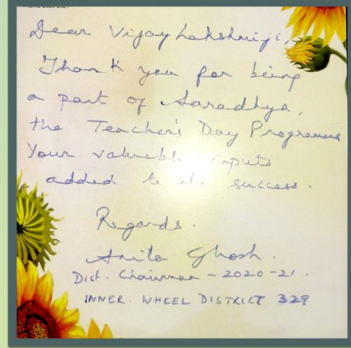 Dear Vijaylakshmiji,
Thank you for being
a part of Aaradhya,
the Teacher's Day Programme
Your valuable inputs
added to its success.
Regards.
Anita Ghosh.
Dist. Chairman - 2020-21.
INNER WHEEL DISTRICT 329